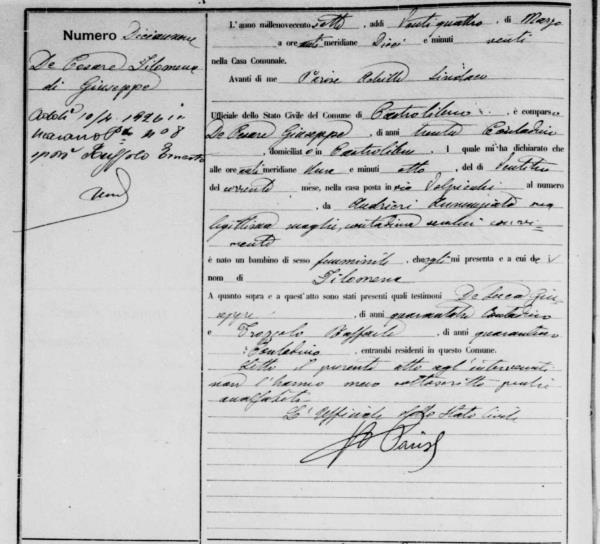 Numero Diciannove
De Cesare Filomena
di Giuseppe
10/4 1926 in
Marano 8
sposò Ruffolo Ernesto
L'anno millenovecento sette, addì Venti quattro, di Marzo
a ore anti meridiane Dieci e minuti venti
nella Casa Comunale.
Avanti di me Parise Achille Sindaco
Ufficiale dello Stato Civile del Comune di Castrolibero, è comparso
De Cesare Giuseppe, di anni trenta Contadino
, domiciliato in Castrolibero. I quale mi ha dichiarato che
alle ore anti meridiane Nove e minuti otto, del dì Ventitre
del corrente mese, nella casa posta in via al numero
, da Andrieri Annunziata sua
legittima moglie, contadina seco lui convi-
vente
è nato un bambino di sesso femminile che egli mi presenta e a cui dà i
nom di Filomena
A quanto sopra e a quest'atto sono stati presenti quali testimoni De Luca Giu-
seppe, di anni quarantotto Contadino
e Trozzolo Raffaele, di anni quarantuno
Contadino, entrambi residenti in questo Comune.
Letto il presente atto agl'intervenuti
non l'hanno meco sottoscritto perché
analfabeti
L'Ufficiale dello Stato Civile
A Parise